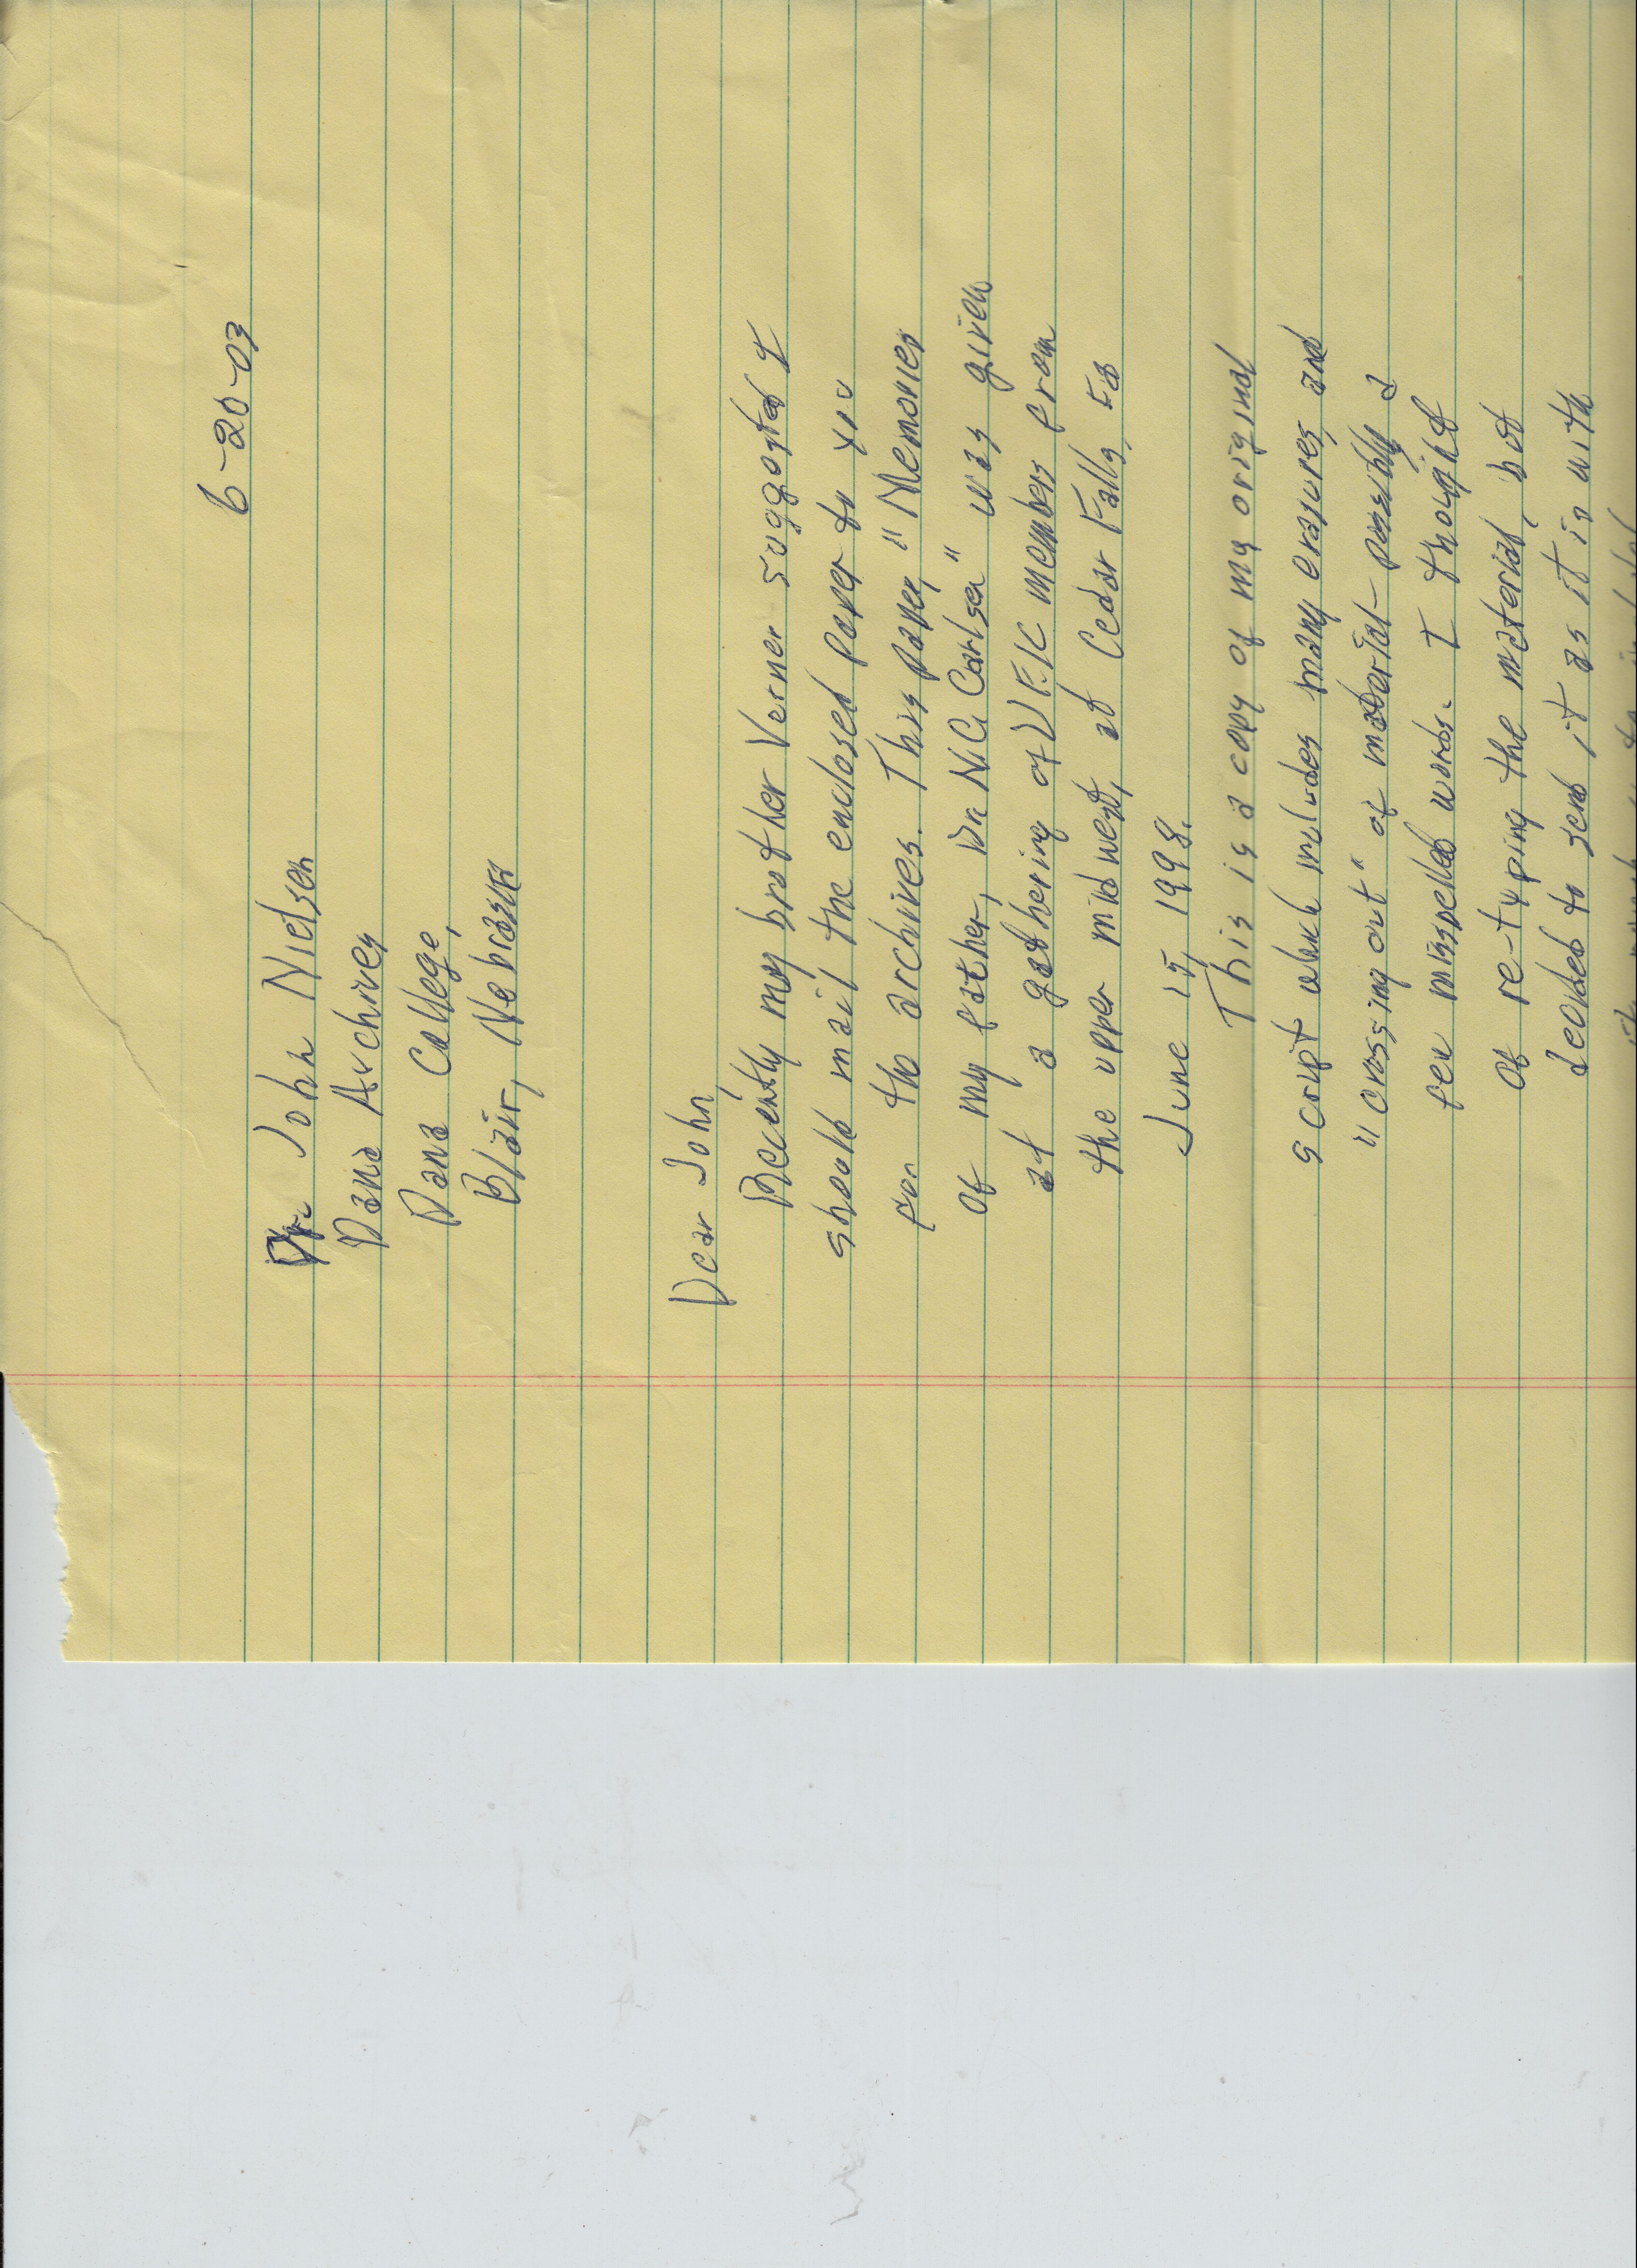 6-20-03
Dr. John Nielsen
Dana Archives
Dana College,
Blair, Nebraska
Dear John,
Recently my brother Verner suggested I
should mail the enclosed paper to you
for the archives. This paper, "Memories
of my father, Dr. N.C. Carlsen" was given
at a gathering of UEIC members from
the upper midwest, at Cedar Falls, Ia
June 15, 1998.
This is a copy of my original
script which includes many erasures, and
"crossing out" of material - possibly a
few misspelled words. I thought
of re-typing the material, but
decided to send it as it is with